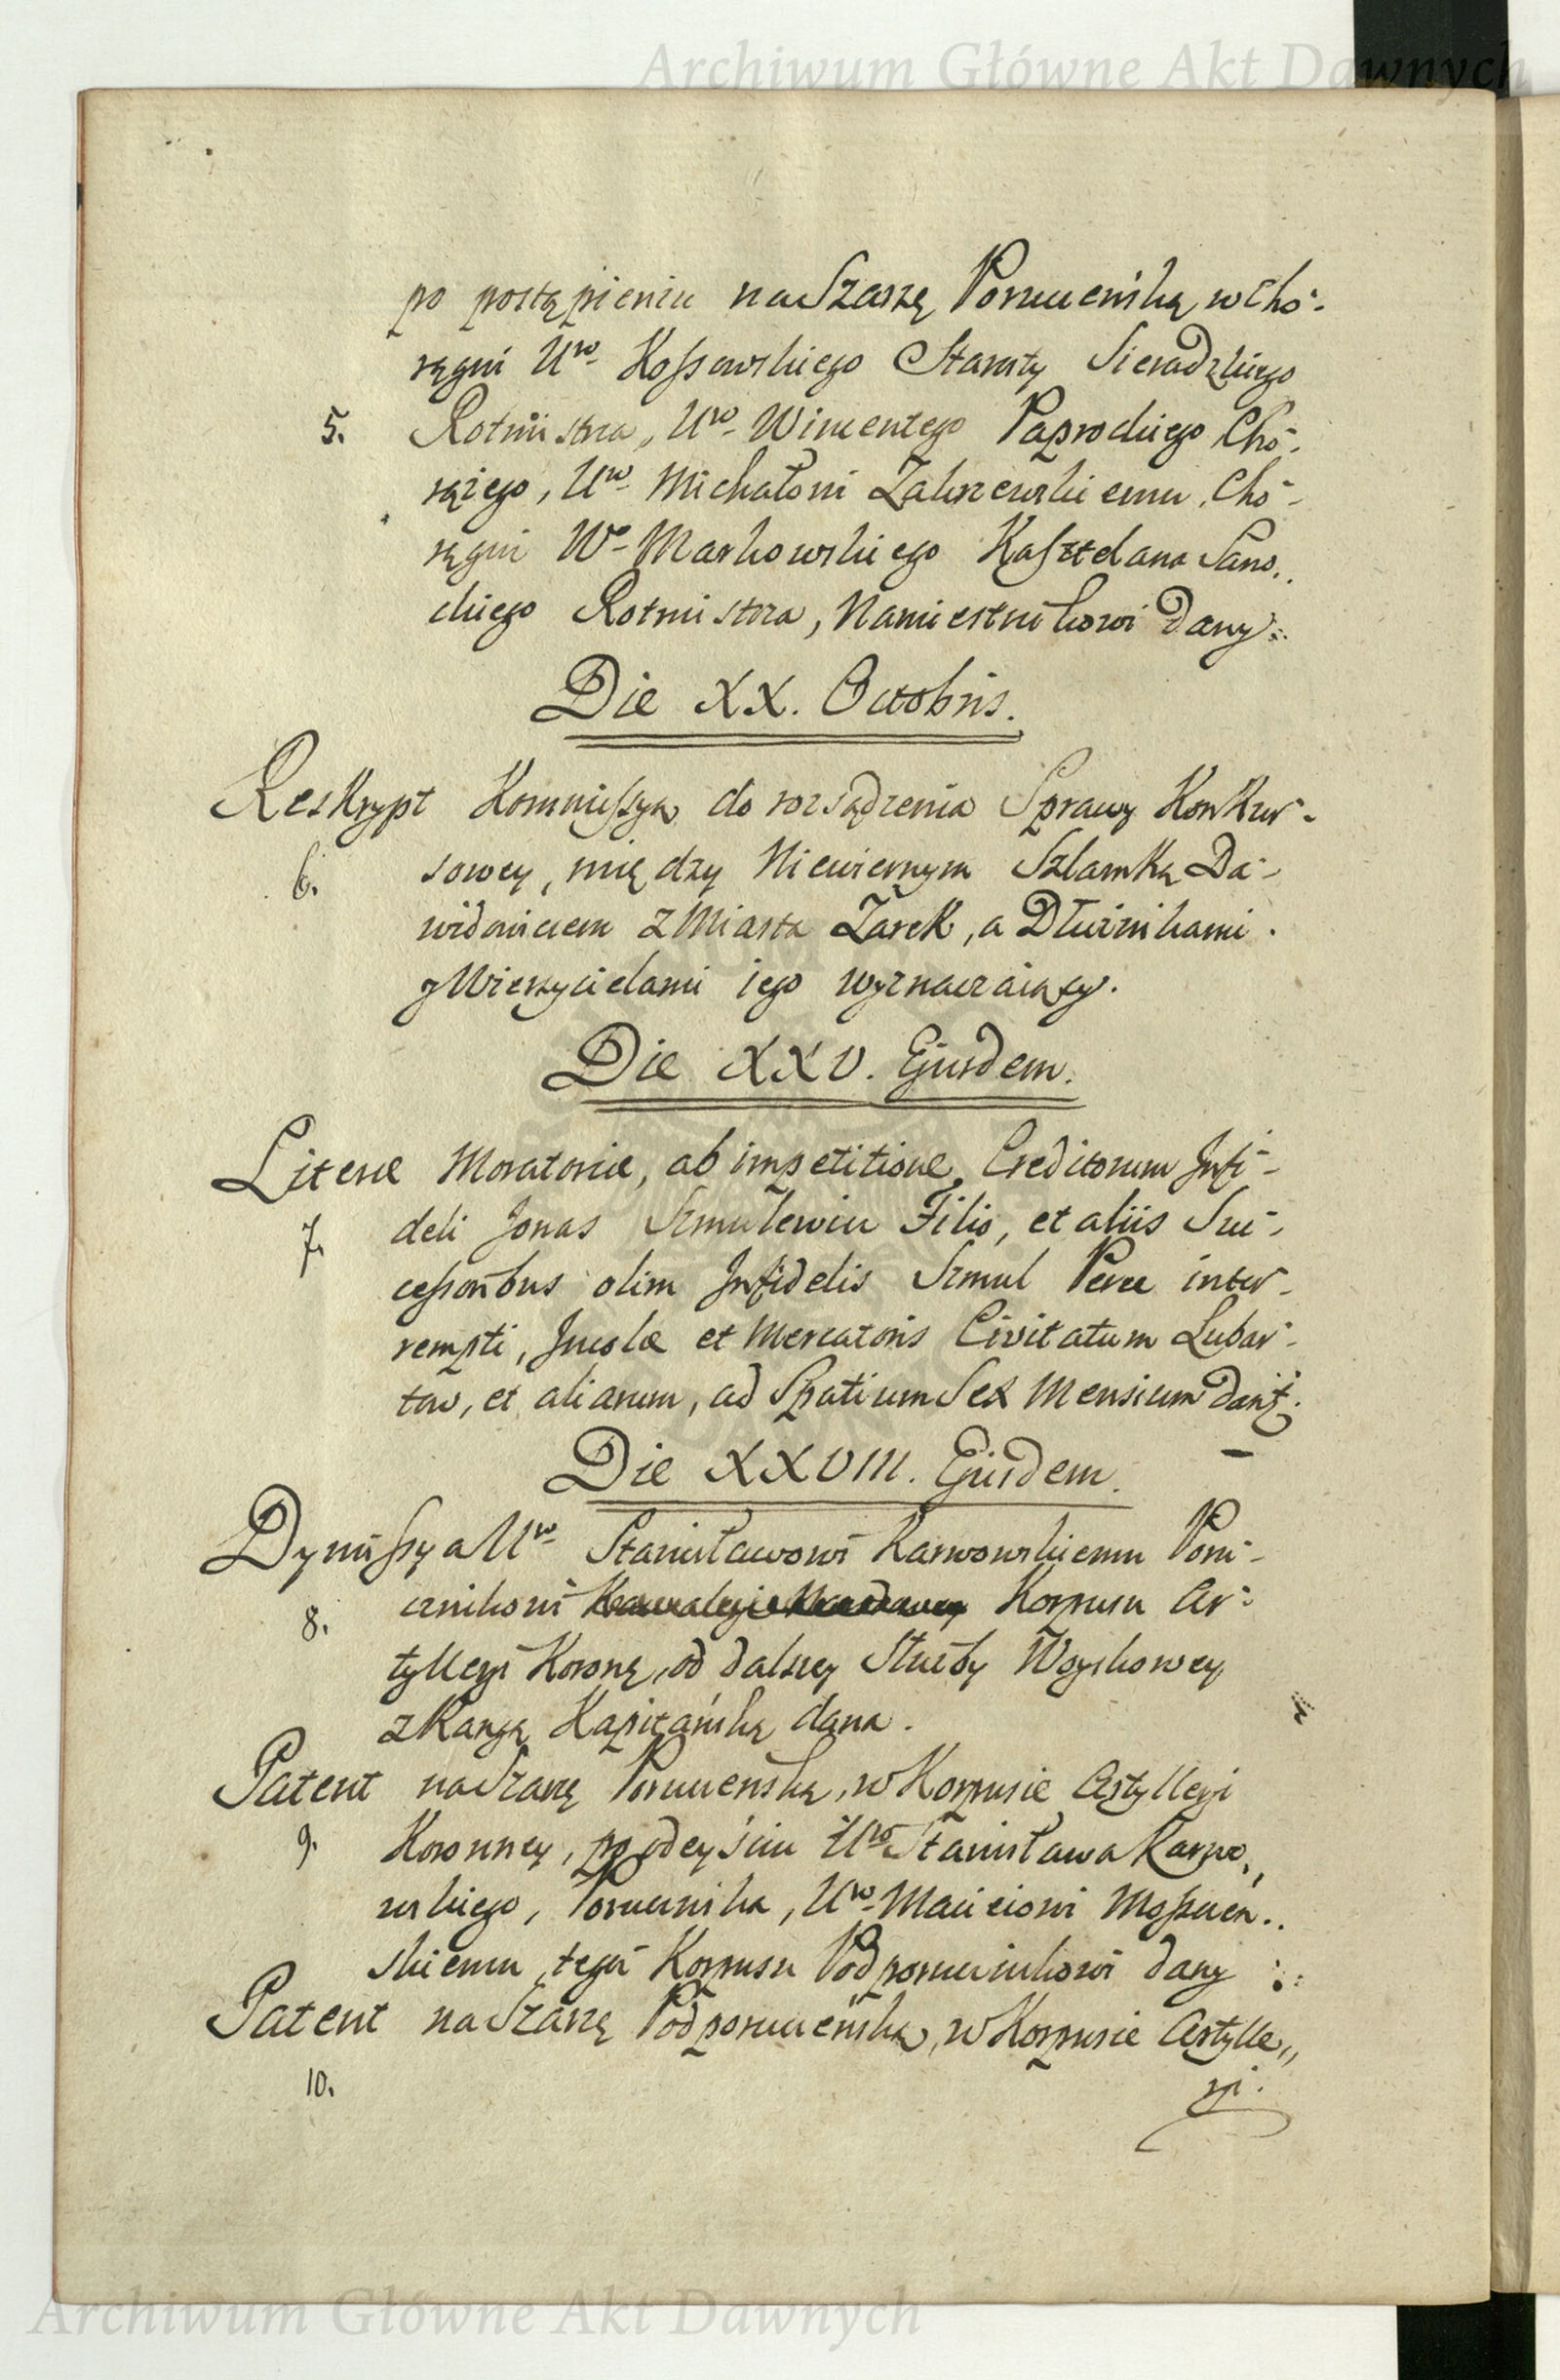 Archiwum Główne Akt Dawnych
po postąpieniu na Szarzę Porucińską w Cho-
rągwi Uro Kossowskiego Starosty Sieradzkiego
5. Rotmistrza, Uro Wincentego Paprockiego Cho-
rążego, Uro Michałowi Zakrzewskiemu, Cho-
rągwi Wo Markowskiego Kasztelana Sano..
ckiego Rotmistrza, Namiestnikowi Dany.
Die XX. Octobris.
Reskrypt Kommissyą do rozsądzenia Sprawy Konkur-
6. sowey, między Niewiernym Szlamką Da-
widowiczem z Miasta Żarek, a Dłużnikami
y Wierzycielami iego wyznaczaiący.
Die XXV. Ejusdem.
Literæ Moratoriæ, ab impetitione Creditorum Infi-
7. deli Jonas Szmulewicz Filio, et aliis Suc-
cessoribus olim Infidelis Szmul Perec inter-
rempti, Incolæ et Mercatoris Civitatum Lubar-
tow, et aliarum, ad Spatium Sex Mensium Dant.
Die XXVIII. Ejusdem.
Dymissya Uro Stanisławowi Karwowskiemu Poru-
8. cznikowi Korpusu Ar-
tylleryi Koronę, od dalszey Służby Woyskowey
z Rangą Kapitańską dana.
Patent na Szarżę Porucińską, w Korpusie Artylleryi
9. Koronney, po odeyściu Uro Stanisława Karwo,,
wskiego, Porucznika, Uro Macieiowi Moszczeń..
skiemu tegoż Korpusu Podporucznikowi dany
Patent na Szarżę Podporucińską, w Korpusie Artylle,,
10. ryi.
Archiwum Główne Akt Dawnych